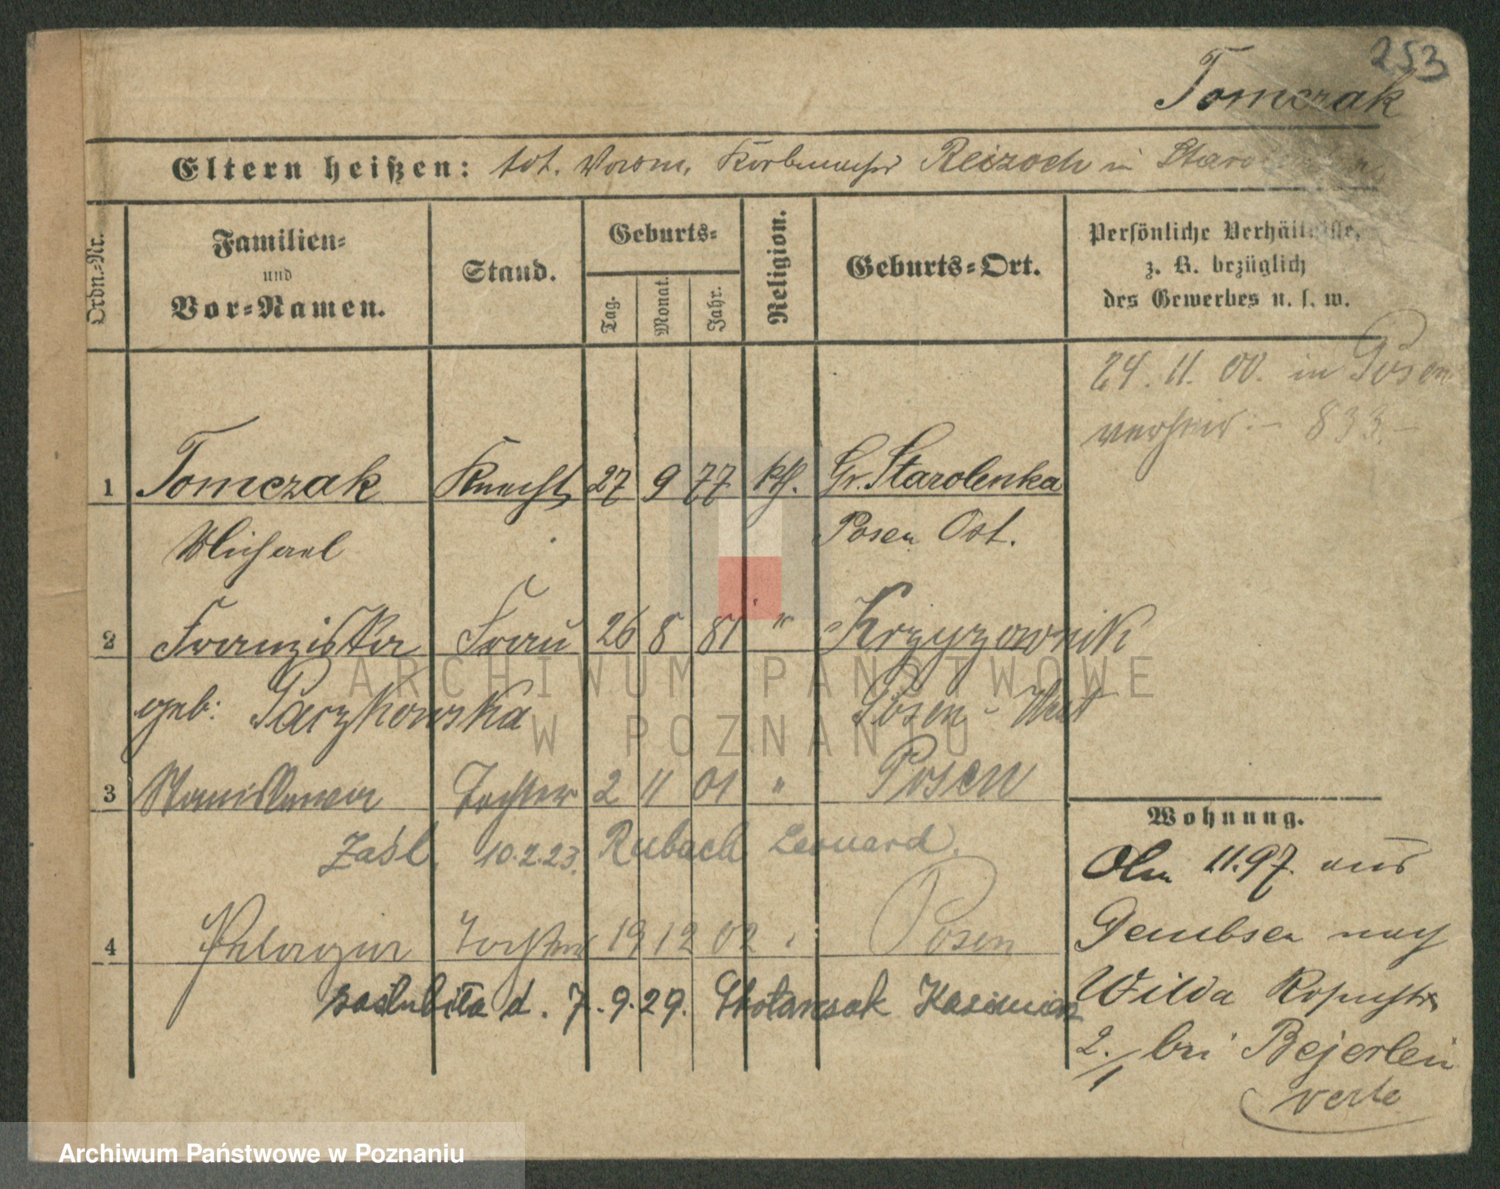 253
Tomczak
Eltern heißen: tot. Vorm. Korbmacher Reizoch in Starolenka
Ordn.-Nr.
Familien-
und
Vor-Namen.
Stand.
Geburts-
Tag.
Monat.
Jahr.
Religion.
Geburts-Ort.
Persönliche Verhältnisse,
z. B. bezüglich
des Gewerbes u. s. w.
24. 11. 00. in Posen
verheir. - 833.-
1 Tomczak Knecht 27 9 77 kth. Gr. Starolenka
Michael Posen Ost.
2 Franziska Frau 26 8 81 " Krzyzownik
geb: Paczkowska Posen - West
3 Stanislawa Tochter 2 11 01 " Posen
Zaśl. 10.2.23. Rubach Leonard.
4 Pelagia Tochter 19 12 02 Posen
zaślubiła d. 7.9.29. Kasimierz
Wohnung.
11.97. aus
Dembsen nach
Wilda
2./1 bei Bejerlein
verte
ARCHIWUM PAŃSTWOWE
W POZNANIU
Archiwum Państwowe w Poznaniu